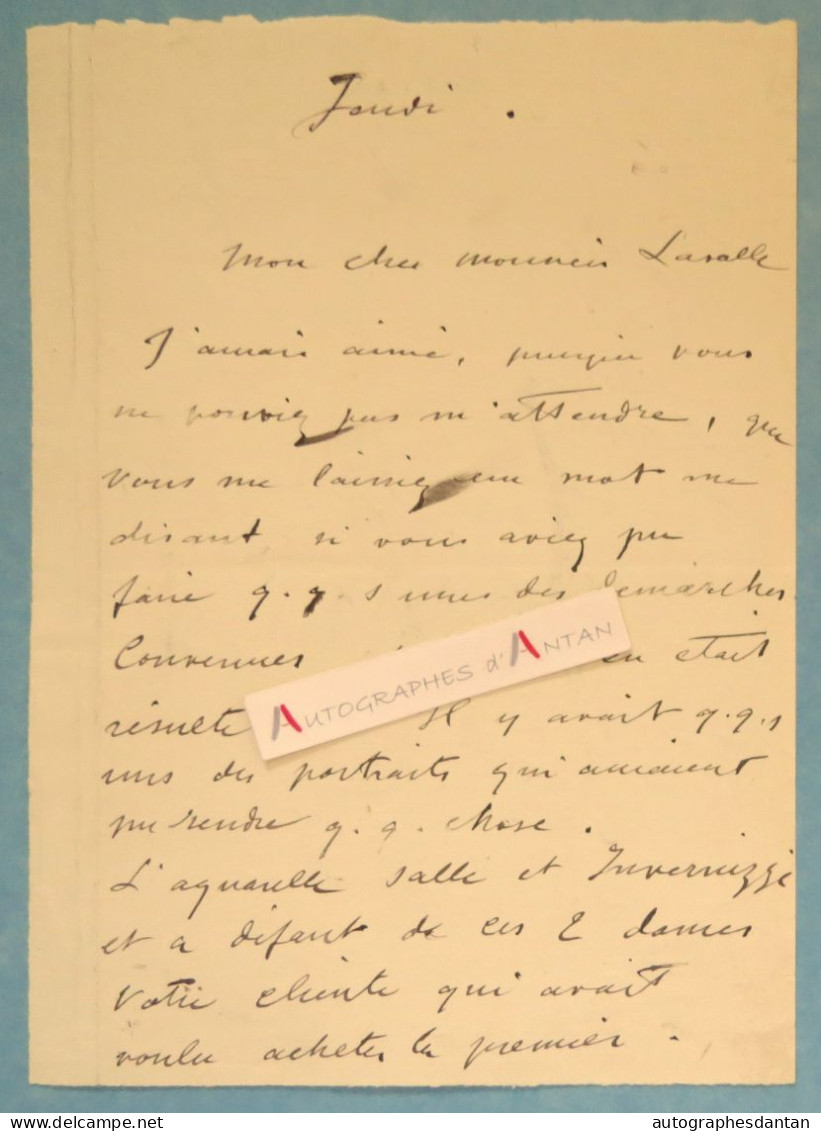 Jeudi.
Mon cher monsieur Lasalle
J'aurais aimé, puisque vous
ne pouviez pas m'attendre, que
vous me laissiez un mot me
disant si vous aviez pu
faire q.q.s unes des demarches
Convenues en était
résulté Il y avait q.q.s
uns des portraits qui auraient
pu rendre q.q. chose.
L'aquarelle Salle et Invernizzi
et a défaut de ces 2 dames
Votre cliente qui avait
voulu acheter la premier.
AUTOGRAPHES d'ANTAN
www.delcampe.net
autographesdantan